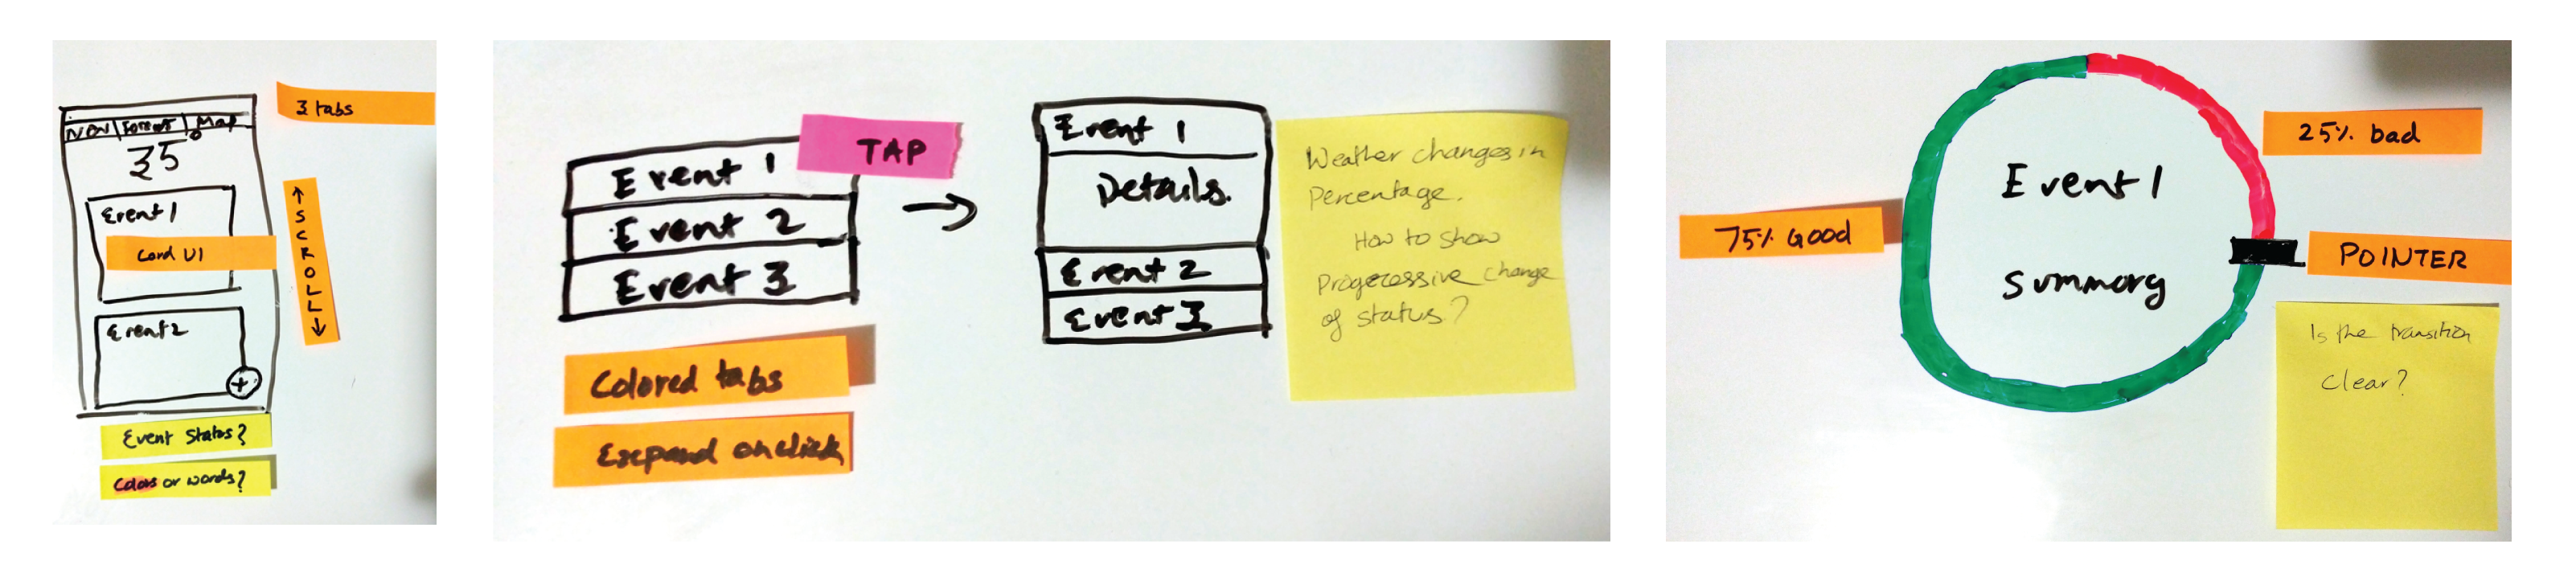 3 tabs
NOW | Forecast | Map
35°
Event 1
Card UI
Event 2
+
↑ SCROLL ↓
Event Status?
Colors or words?
Event 1
TAP
Event 2
Event 3
Colored tabs
Expand onclick
→
Event 1
Details.
Event 2
Event 3
Weather changes in
Percentage.
How to show
Progecessive change
of status?
25% bad
75% Good
Event 1
Summary
POINTER
Is the transition
clear?